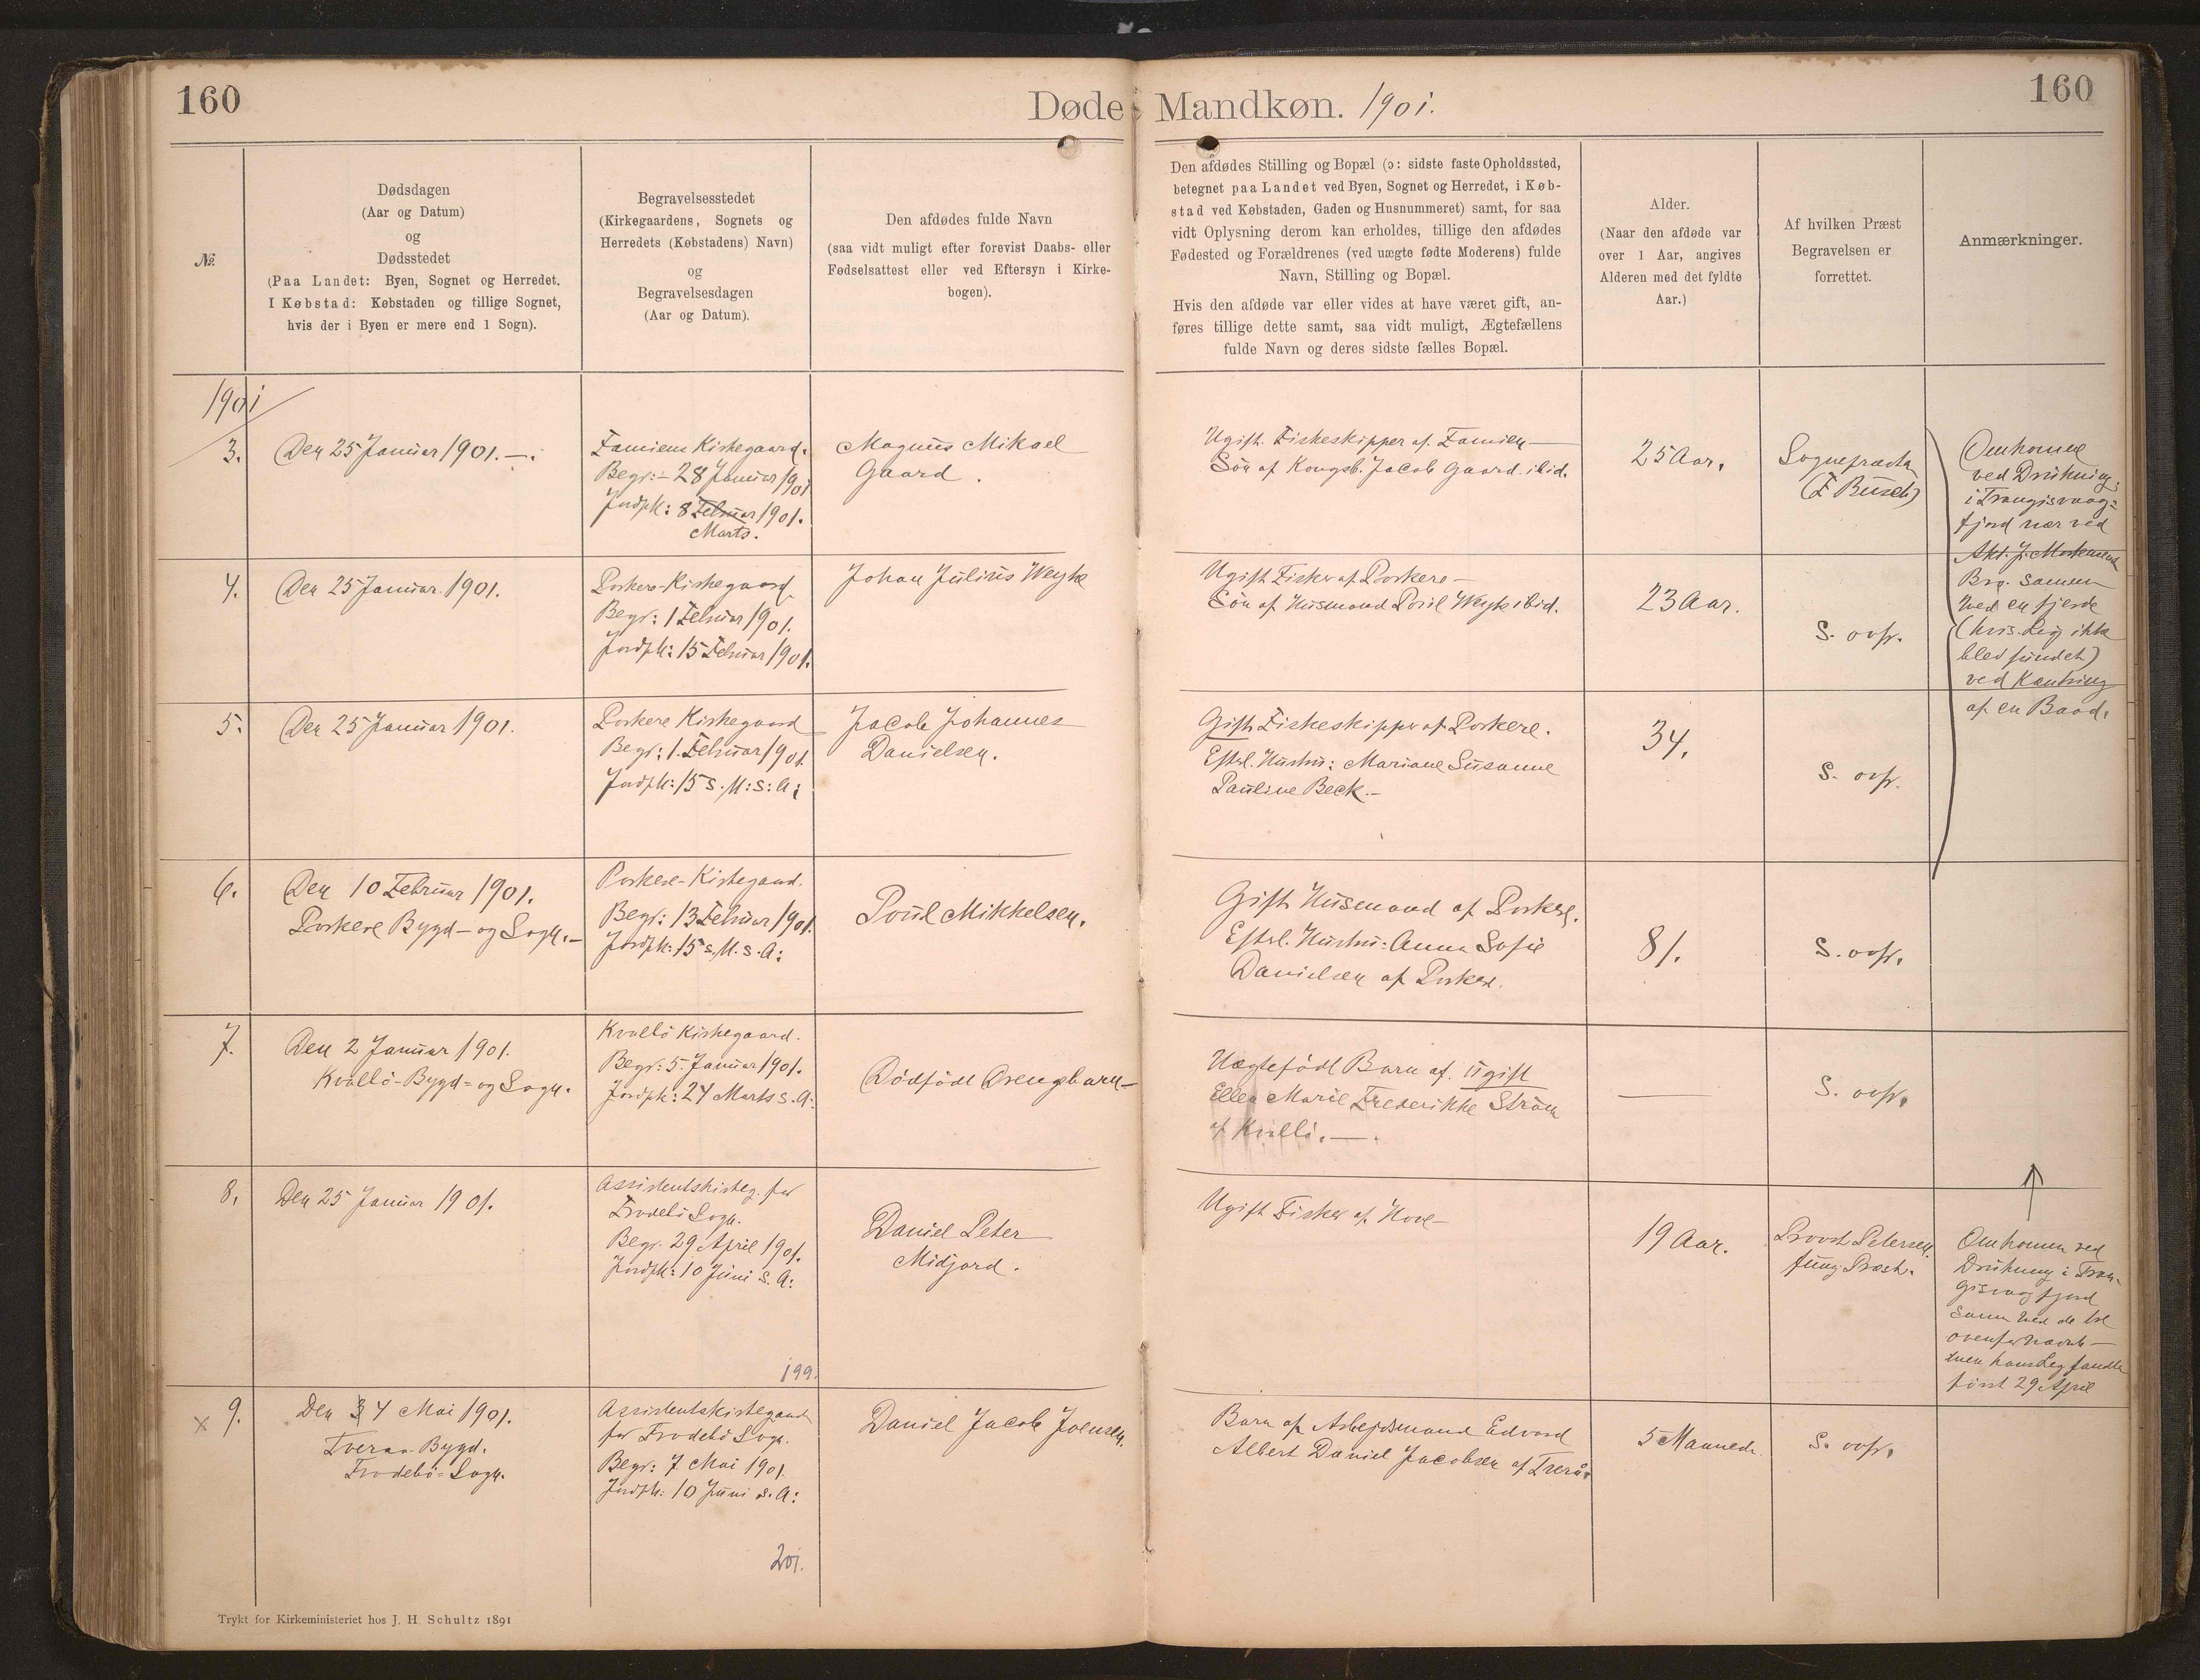 160
Døde Mandkøn. 1901.
160
№
Dødsdagen
(Aar og Datum)
og
Dødsstedet
(Paa Landet: Byen, Sognet og Herredet.
I Købstad: Købstaden og tillige Sognet,
hvis der i Byen er mere end 1 Sogn).
Begravelsesstedet
(Kirkegaardens, Sognets og
Herredets (Købstadens) Navn)
og
Begravelsesdagen
(Aar og Datum).
Den afdødes fulde Navn
(saa vidt muligt efter forevist Daabs- eller
Fødselsattest eller ved Eftersyn i Kirke-
bogen).
Den afdødes Stilling og Bopæl (ɔ: sidste faste Opholdssted,
betegnet paa Landet ved Byen, Sognet og Herredet, i Køb-
stad ved Købstaden, Gaden og Husnummeret) samt, for saa
vidt Oplysning derom kan erholdes, tillige den afdødes
Fødested og Forældrenes (ved uægte fødte Moderens) fulde
Navn, Stilling og Bopæl.
Hvis den afdøde var eller vides at have været gift, an-
føres tillige dette samt, saa vidt muligt, Ægtefællens
fulde Navn og deres sidste fælles Bopæl.
Alder.
(Naar den afdøde var
over 1 Aar, angives
Alderen med det fyldte
Aar.)
Af hvilken Præst
Begravelsen er
forrettet.
Anmærkninger.
1901
3.
Den 25 Januar 1901.—.
Famiens Kirkegaard.
Begr:- 28 Januar 1901
Jordpk: 8 Februar 1901.
Marts.
Magnus Mikael
Gaard.
Ugift. Fiskeskipper af Famien—
Søn af Kongsb. Jacob Gaard. ibid.
25 Aar.
Sognepræsten
(F Busch)
Omkommen
ved Drukning
i Trangisvaag=
fjord nær ved
Akt. J. Mortensens
Brg. sammen
med en fjerde
(hvis Lig ikke
blev fundet)
ved Kæntring
af en Baad.
4.
Den 25 Januar 1901.
Porkere-Kirkegaard
Begr: 1 Februar 1901.
Jordpk: 15 Februar 1901.
Johan Julius Weyhe
Ugift Fisker af Porkere—
Søn af Husmand Poul Weyhe ibid.
23 Aar.
S. ovfr.
5.
Den 25 Januar 1901.
Porkere Kirkegaard
Begr: 1. Februar 1901.
Jordpk: 15 s. M: s: A:
Jacob Johannes
Danielsen.
Gift Fiskeskipper af Porkere.
Efterl. Hustru: Mariane Susanne
Pauline Beck.—
34.
S. ovfr.
6.
Den 10 Februar 1901.
Porkere Bygd— og Sogn.—
Porkere-Kirkegaard.
Begr: 13 Februar 1901.
Jordpk: 15 s. M. s. A:
Poul Mikkelsen.
Gift Husmand af Porkere.
Efterl. Hustru: Anna Sofie
Danielsen af Porkere.
81.
S. ovfr.
7.
Den 2 Januar 1901.
Kvalbö-Bygd= og Sogn.
Kvalbö Kirkegaard.
Begr: 5. Januar 1901.
Jordpk: 24 Marts s. A:
Dödfödt Drengebarn—
Uægtefödt Barn af ugift
Ellen Marie Frederikke Ström
af Kvalbö.—.
S. ovfr.
8.
Den 25 Januar 1901.
Assistentskirkeg. for
Frodebö Sogn.
Begr. 29 April 1901.
Jordpk: 10 Juni s. A:
199.
Daniel Peter
Midjord.
Ugift Fisker af Hove—
19 Aar.
Provst Petersen
fung. Præst.
Omkommen ved
Drukning i Tran-
gisvaagfjord
samm. med de tre
ovenfor nævnte—
men hans Lig fandtes
först 29 April
x 9.
Den 4 Mai 1901.
Tveraa Bygd.
Frodebö= Sogn.
Assistentskirkegaard
for Frodebö Sogn.
Begr: 7 Mai 1901.
Jordpk: 10 Juni s. A:
201.
Daniel Jacob Joensen.
Barn af Arbejdsmand Edvard
Albert Daniel Jacobsen af Tverå.
5 Maaneder
S. ovfr.
Trykt for Kirkeministeriet hos J. H. Schultz 1891